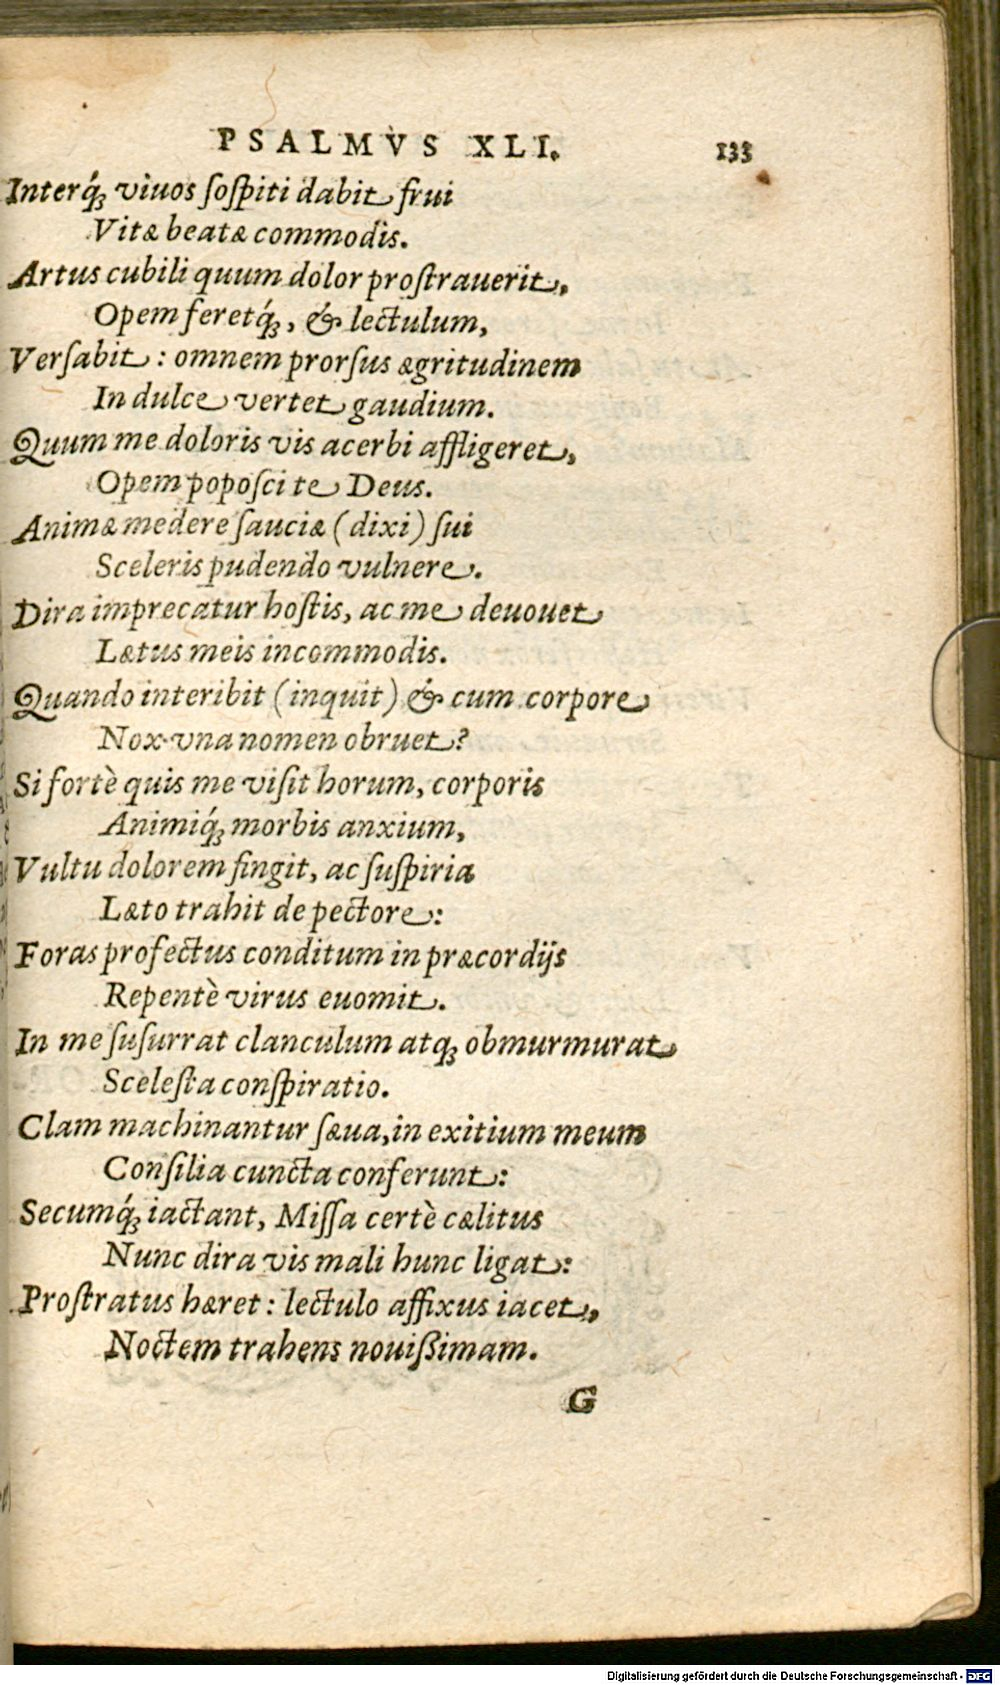 PSALMVS XLI. 133
Interq́; viuos ſoſpiti dabit frui
Vitæ beatæ commodis.
Artus cubili quum dolor proſtrauerit,
Opem feretq́;, & lectulum,
Verſabit: omnem prorſus ægritudinem
In dulce vertet gaudium.
Quum me doloris vis acerbi affligeret,
Opem popoſci te Deus.
Animæ medere ſauciæ (dixi) ſui
Sceleris pudendo vulnere.
Dira imprecatur hoſtis, ac me deuouet
Lætus meis incommodis.
Quando interibit (inquit) & cum corpore
Nox vna nomen obruet?
Si fortè quis me viſit horum, corporis
Animiq́; morbis anxium,
Vultu dolorem fingit, ac ſuſpiria
Læto trahit de pectore:
Foras profectus conditum in præcordijs
Repentè virus euomit.
In me ſuſurrat clanculum atq; obmurmurat
Sceleſta conſpiratio.
Clam machinantur ſæua, in exitium meum
Conſilia cuncta conferunt:
Secumq́; iactant, Miſſa certè cælitus
Nunc dira vis mali hunc ligat:
Proſtratus hæret: lectulo affixus iacet,
Noctem trahens nouißimam.
G
Digitalisierung gefördert durch die Deutsche Forschungsgemeinschaft - DFG